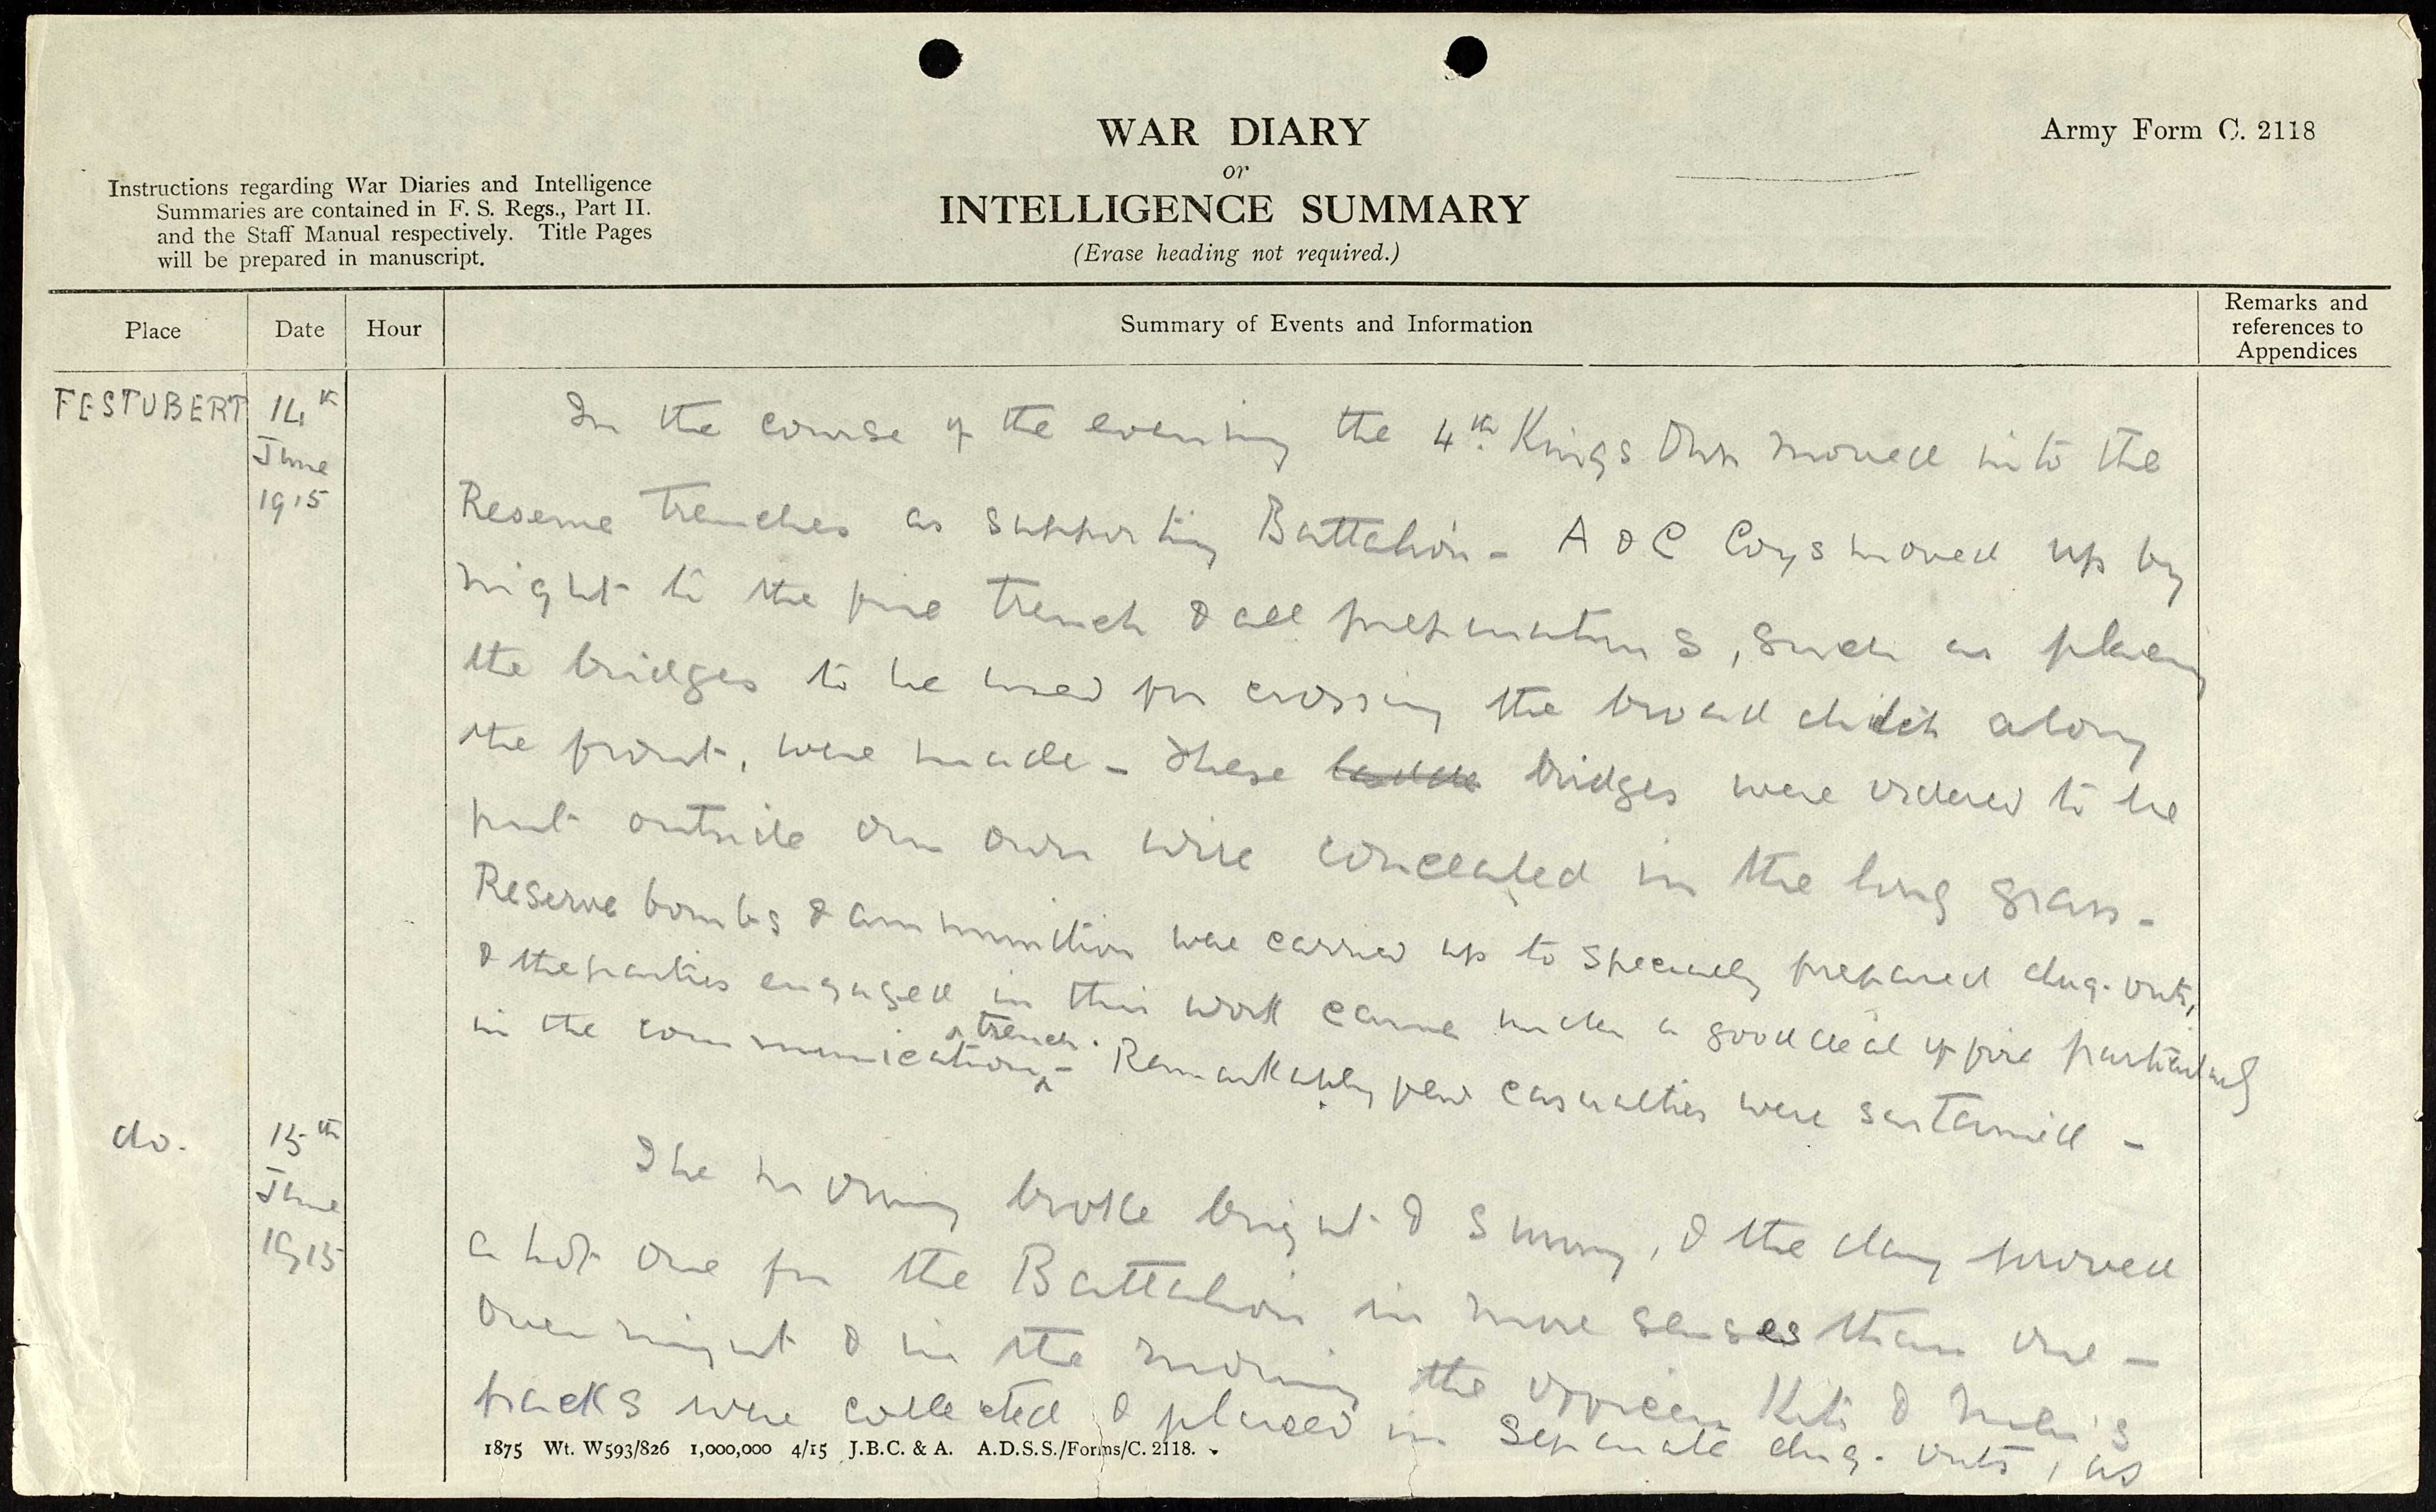 WAR DIARY
or
INTELLIGENCE SUMMARY
(Erase heading not required.)
Army Form C. 2118
Instructions regarding War Diaries and Intelligence
Summaries are contained in F. S. Regs., Part II.
and the Staff Manual respectively. Title Pages
will be prepared in manuscript.
Place
Date
Hour
Summary of Events and Information
Remarks and
references to
Appendices
FESTUBERT
14th
June
1915
In the course of the evening the 4th Kings Own moved into the
Reserve trenches as supporting Battalion - A & C Coys moved up by
night to the fire trench & all preparations, such as placing
the bridges to be used for crossing the broad ditch along
the front, were made - These bridges were ordered to be
put outside our own wire concealed in the long grass -
Reserve bombs & ammunition were carried up to specially prepared dug-outs,
& the parties engaged in this work came under a good deal of fire particularly
in the communication trench. - Remarkably few casualties were sustained -
do.
15th
June
1915
The morning broke bright & sunny, & the day proved
a hot one for the Battalion in more senses than one -
Overnight & in the morning the officers Kits & men's
packs were collected & placed in separate dug-outs, as
1875 Wt. W593/826 1,000,000 4/15 J.B.C. & A. A.D.S.S./Forms/C. 2118.